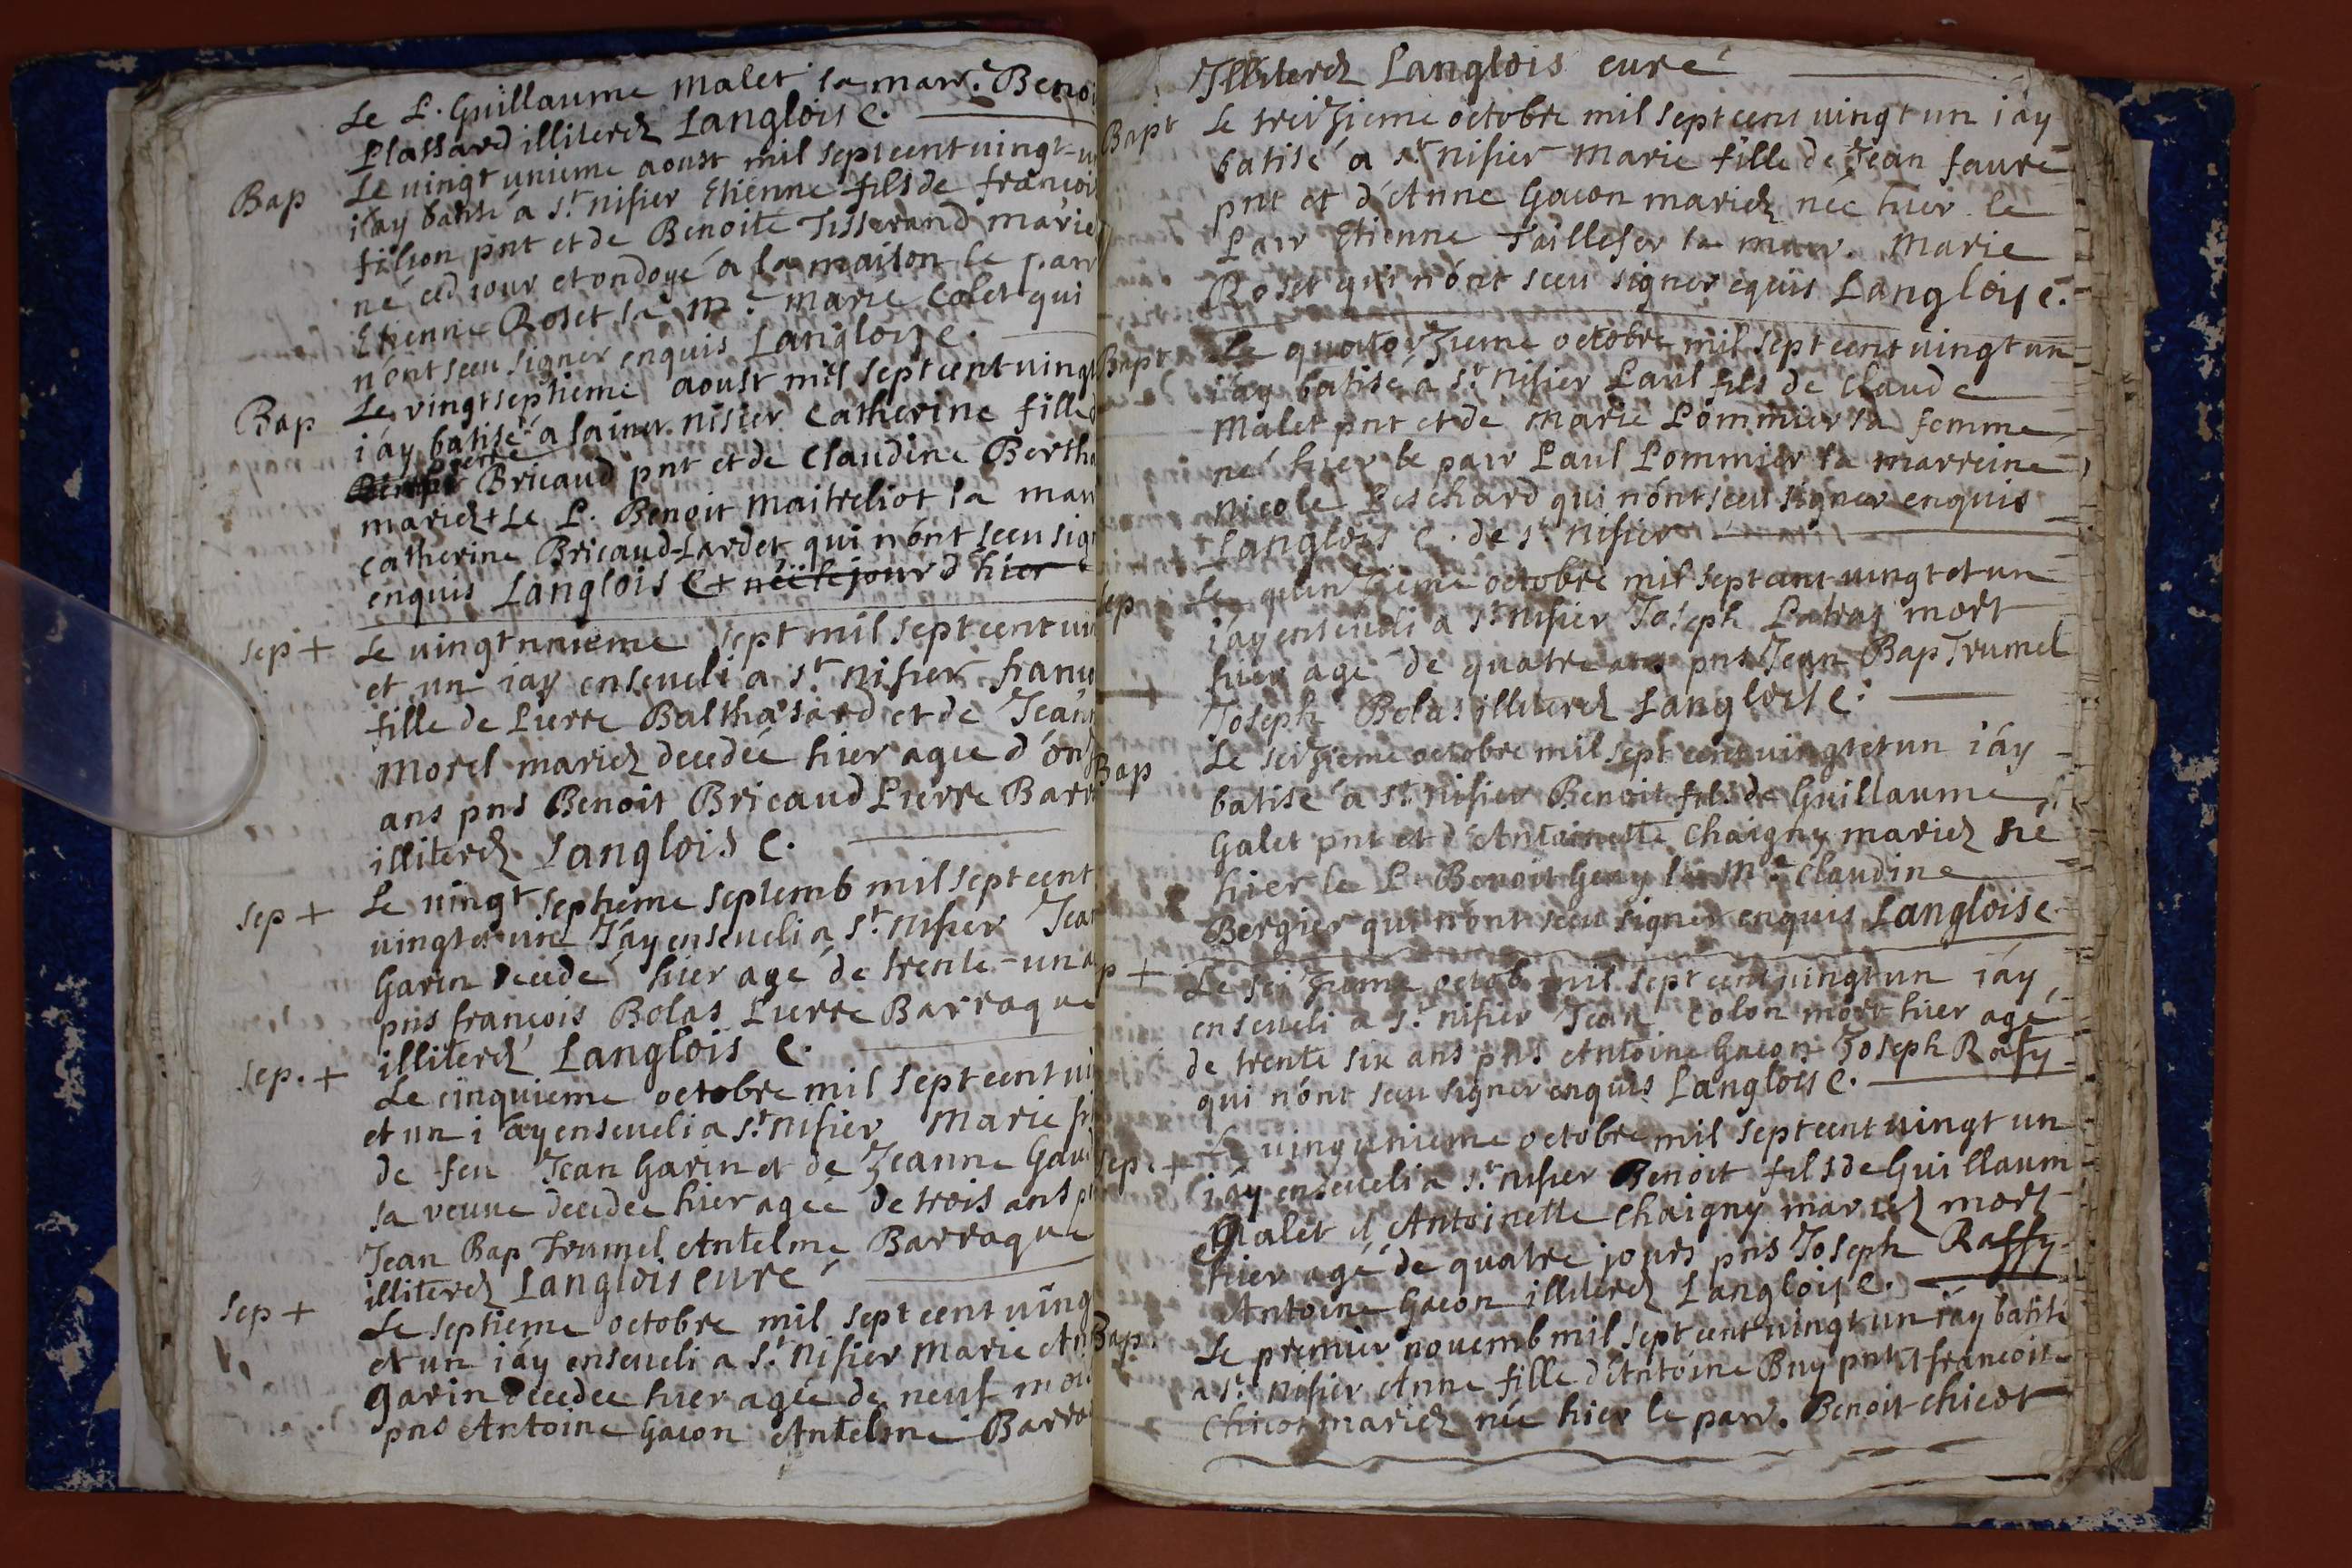 Le P. Guillaume malet la marr.e Benoi
Plassard illiterez Langlois C.
Bap Le uingt unieme aoust mil sept cent uingt-u
i'ay batisé a s.t nisier Etiénne fils de françoi
filion pnt et de Benoite Tisserand marie
né ced jour et ondoyé a la maison le parr
Etienne Roset la m.e marie Colet qui
n'ont sceu signer enquis Langlois C.
Bap Le vingt septieme aoust mil sept cent uingt
i'ay batisé a sainct nisier Catherine fille d
pierre
Bricaud pnt et de Claudine Bertho
mariez + Le P. Benoit maitreliot la marr
catherine Bricaud-Lardet qui n'ont sceu sig
enquis Langlois C + néë le jour d'hier
sep + Le uingt unieme sept mil sept cent ui
et un i'ay enseueli a s.t nisier franc
fille de Pierre Balthasard et de Jean
Morel mariez decedée hier agee d'onz
ans pns Benoit Bricaud Pierre Barr
illiterez Langlois C.
sep + Le uingt septieme septemb mil sept cent
uingt et un J'ay enseueli a s.t nisier Jea
Garin decedé hier agé de trente-un a
pns françois Bolas Pierre Barraque
illiterez Langlois C.
sep. + Le cinquieme octobre mil sept cent ui
et un i'ay enseueli a s.t nisier Marie fi
de feu Jean Garin et de Jeanne Gau
sa veuue decedée hier agee de trois ans p
Jean Bap Trumel Antelme Barraque
illiterez Langlois curé
sep + Le septieme octobre mil sept cent uing
et un i'ay enseueli a s.t nisier Marie An
garin decedee hier agée de neuf moi
pns Antoine Gacon Antelme Barra
Illiterez Langlois curé
Bapt Le treizieme octobre mil sept cent uingt un i'ay
batisé a s.t nisier Marie fille de Jean faure
pnt et d'Anne Gacon mariez née hier le
Parr Etienne Taillefer la marr. Marie
Roset qui n'ont sceu signer equis Langlois C.
Bapt Le quatorzieme octobre mil sept cent uingt un
i'ay batisé a s.t nisier Paul fils de Claude
Malet pnt et de Marie Pommier sa femme
né hier le parr Paul Pommier la marreine
Nicole Peschard qui n'ont sceu signer enquis
Langlois C. de s.t nisier
sep Le quinzieme octobre mil sept cent uingt et un
i'ay enseueli a s.t nisier Joseph Patras mort
hier agé de quatre ans pns Jean Bap Trumel
Joseph Bolas illiterez Langlois C.
Bap Le seizieme octobre mil sept cent uingt et un i'ay
batisé a s.t nisier Benoit fils de Guillaume
Galet pnt et d'Antoinette Chaigny mariez né
hier le P. Benoit Geay la M.e Claudine
Bergier qui n'ont sceu signer enquis Langlois C
p + Le seizieme octob mil sept cent uingt un i'ay
enseueli a s.t nisier Jean Colon mort hier agé
de trente six ans pns Antoine Gacon Joseph Rafy
qui n'ont sceu signer enquis Langlois C.
sep. + Le uingunieme octobre mil sept cent uingt un
i'ay enseueli a s.t nisier Benoit fils de Guillaum
Galet et Antoinette Chaigny mariez mort
hier agé de quatre jours pns Joseph Raffy
Antoine Gacon illiterez Langlois C.
Bap. Le premier nouemb mil sept cent uingt un i'ay batisé
a s.t nisier Anne fille d'Antoine Buy pnt et françoise
Chicot mariez née hier le parr. Benoit Chicot